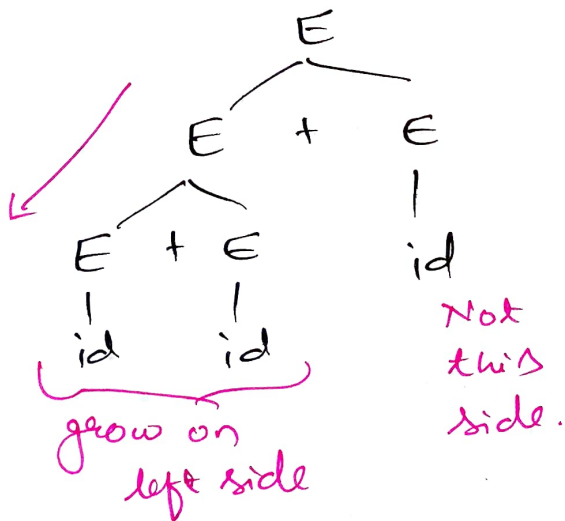 E
E + E
E + E
id
id id
Not
this
side.
grow on
left side